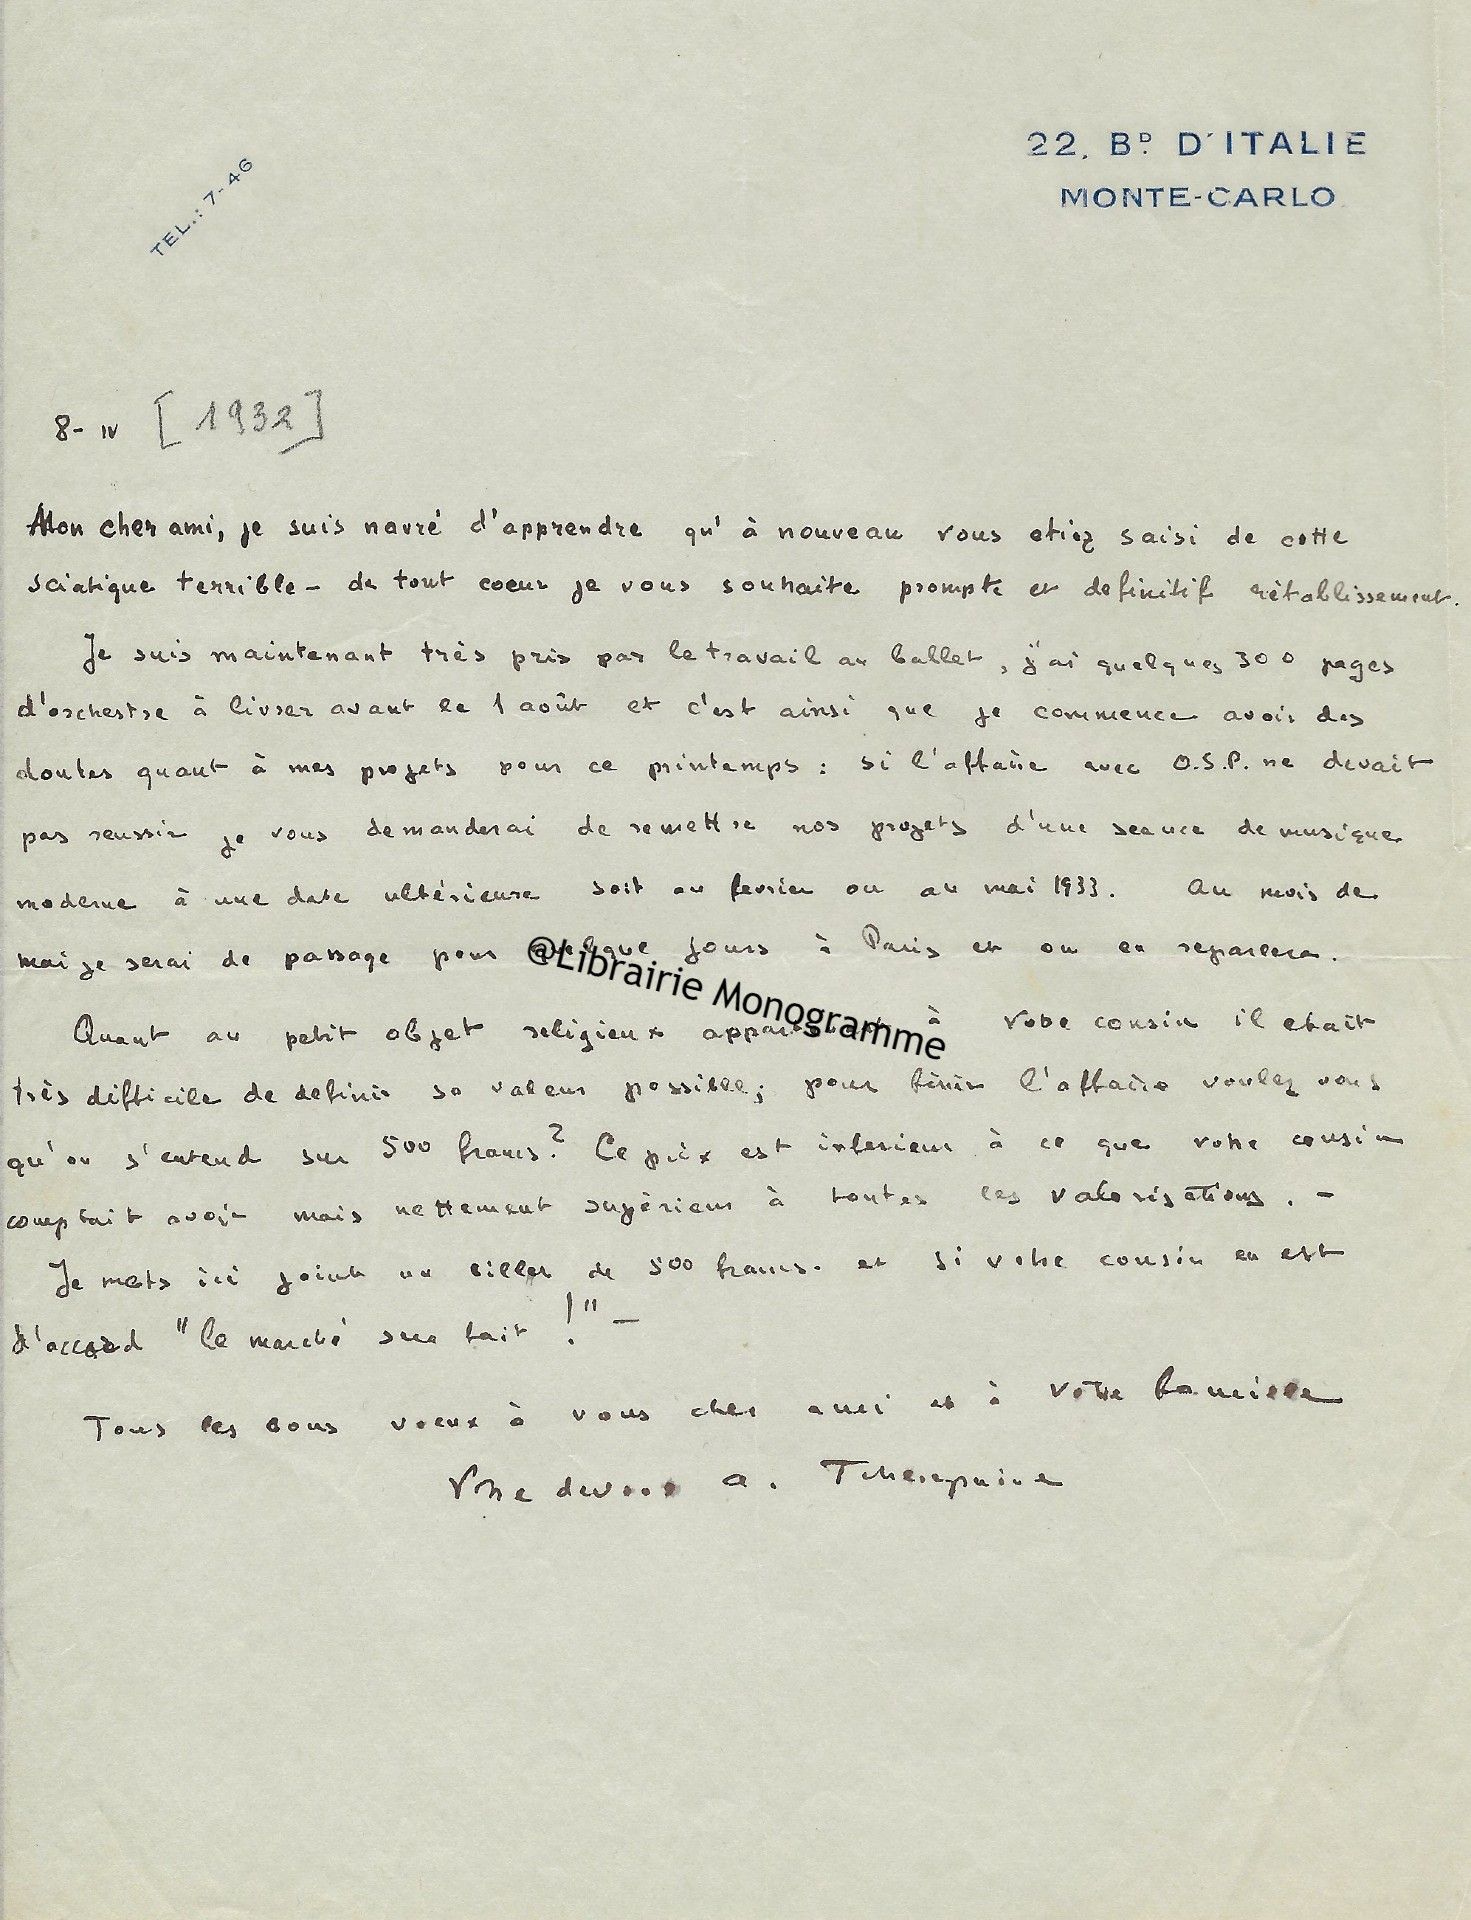 22, Bᴰ. D'ITALIE
MONTE-CARLO
TEL.: 7-46
8- IV [1932]
Mon cher ami, je suis navré d'apprendre qu'à nouveau vous etiez saisi de cette
sciatique terrible - de tout coeur je vous souhaite prompte et definitif rétablissement.
Je suis maintenant très pris par le travail au ballet, j'ai quelques 300 pages
d'orchestre à livrer avant le 1 août et c'est ainsi que je commence avoir des
doutes quant à mes projets pour ce printemps : si l'affaire avec O.S.P. ne devait
pas reussir je vous demanderai de remettre nos projets d'une seance de musique
moderne à une date ultérieure soit au fevrier ou au mai 1933. Au mois de
mai je serai de passage pour quelque jours à Paris et on en reparlera.
Quant au petit objet religieux appartenant à votre cousin il etait
très difficile de definir sa valeur possible; pour finir l'affaire voulez vous
qu'on s'entend sur 500 francs? Ce prix est inferieur à ce que votre cousin
comptait avoir mais nettement supérieur à toutes les valorisations. -
Je mets ici joint un billet de 500 francs. et si votre cousin en est
d'accord "le marché sera fait !" -
Tous les bons voeux à vous cher ami et à votre famille
Votre A. Tcherepnine
@Librairie Monogramme